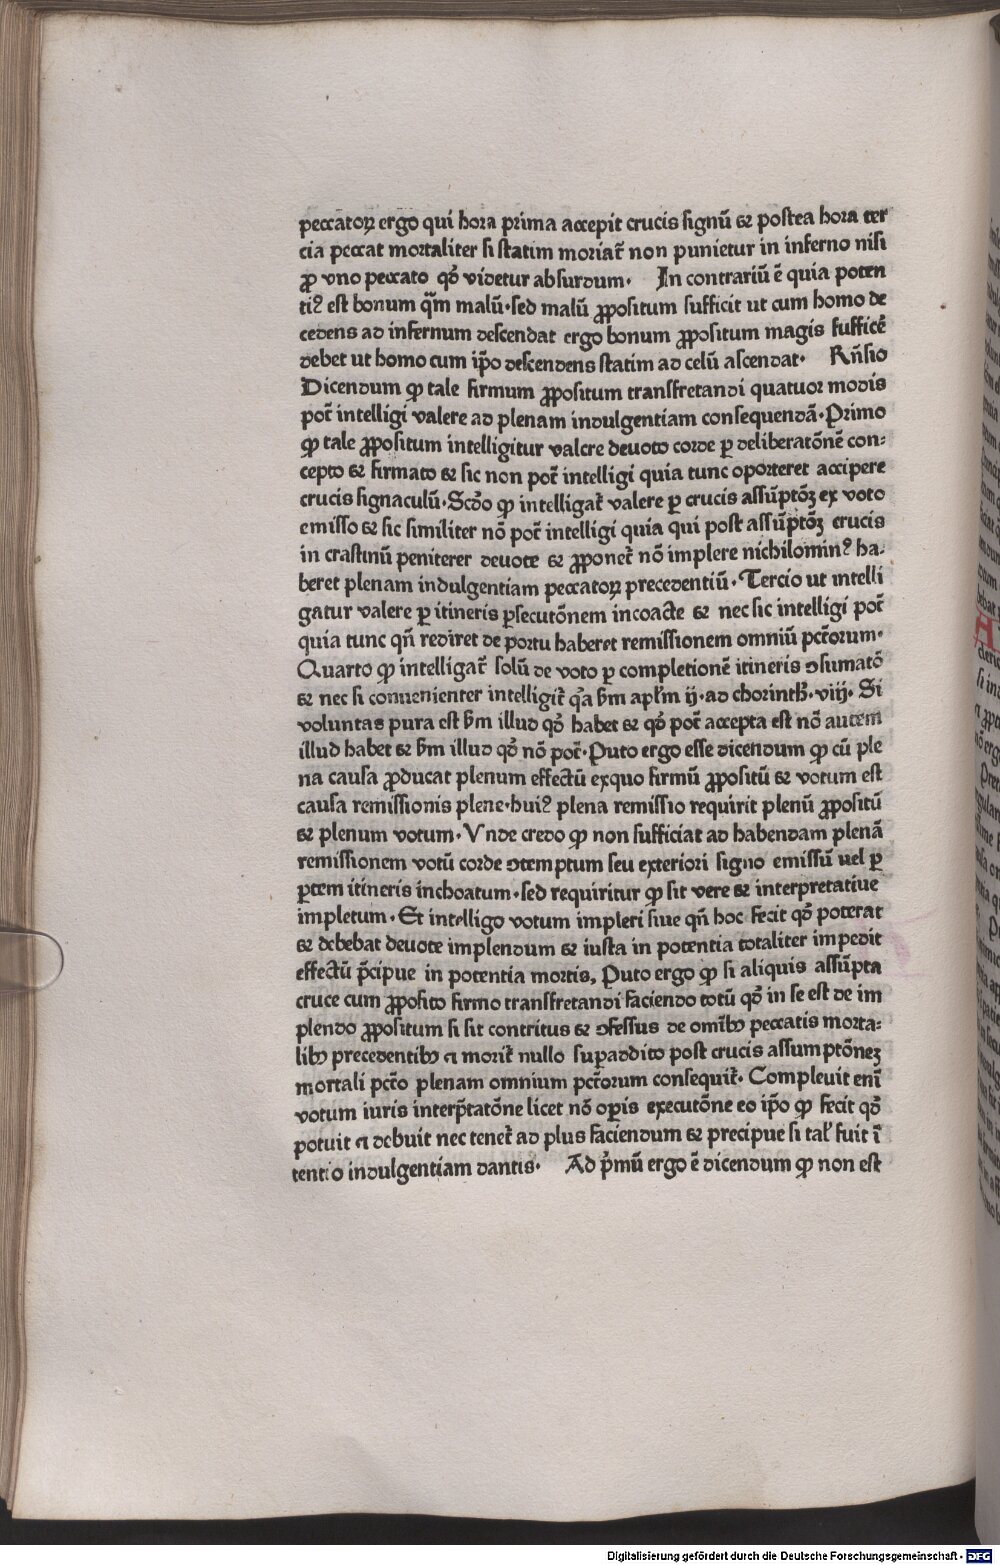 peccatoꝝ ergo qui hora prima accepit crucis signū ⁊ postea hora ter
cia peccat mortaliter si statim moriat᷑ non punietur in inferno nisi
ꝓ vno peccato qꝫ videtur absurdum. In contrariū ē quia poten
tiꝰ est bonum q̃m malū. sed malū ꝓpositum sufficit ut cum homo de
cedens ad infernum descendat ergo bonum ꝓpositum magis sufficē
debet ut homo cum ip̄o descendens statim ad celū ascendat. Rn̄sio
Dicendum ꝙ tale firmum ꝓpositum transfretandi quatuor modis
pot̄ intelligi valere ad plenam indulgentiam consequendā. Primo
ꝙ tale ꝓpositum intelligitur valere deuoto corde ꝑ deliberatōnē con⸗
cepto ⁊ firmato ⁊ sic non pot̄ intelligi quia tunc oporteret accipere
crucis signaculū. Scd̄o ꝙ intelligat᷑ valere ꝑ crucis assūptōꝫ ex voto
emisso ⁊ sic similiter nō pot̄ intelligi quia qui post assūptōꝫ crucis
in crastinū peniterer deuote ⁊ ꝓponet᷑ nō implere nichilominꝰ ha⸗
beret plenam indulgentiam peccatoꝝ precedentiū. Tercio ut intelli
gatur valere ꝑ itineris ꝑsecutōnem incoacte ⁊ nec sic intelligi pot̄
quia tunc qn̄ rediret de portu haberet remissionem omniū pct̄orum.
Quarto ꝙ intelligat᷑ solū de voto ꝑ completionē itineris ↄsumatō
⁊ nec si conuenienter intelligit᷑ qa ẜm apl̄m ij. ad chorintħ. viij. Si
voluntas pura est ẜm illud qd̄ habet ⁊ qd̄ pot̄ accepta est nō autem
illud habet ⁊ ẜm illud qd̄ nō pot̄. Puto ergo esse dicendum ꝙ cū ple
na causa ꝓducat plenum effectū exquo firmū ꝓpositū ⁊ votum est
causa remissionis plene. huiꝰ plena remissio requirit plenū ꝓpositū
⁊ plenum votum. Vnde credo ꝙ non sufficiat ad habendam plenā
remissionem votū corde ↄtemptum seu exteriori signo emissū uel ꝑ
ꝑtem itineris inchoatum. sed requiritur ꝙ sit vere ⁊ interpretatiue
impletum. Et intelligo votum impleri siue qn̄ hoc fecit qd̄ poterat
⁊ debebat deuote implendum ⁊ iusta in potentia totaliter impedit
effectū p̄cipue in potentia mortis, Puto ergo ꝙ si aliquis assūpta
cruce cum ꝓposito firmo transfretandi faciendo totū qd̄ in se est de im
plendo ꝓpositum si sit contritus ⁊ ↄfessus de omībꝫ peccatis morta⸗
libꝫ precedentibꝫ ⁊ morit᷑ nullo supaddito post crucis assumptōneꝫ
mortali pct̄o plenam omnium pct̄orum consequit᷑. Compleuit enī
votum iuris interp̄tatōne licet nō oꝑis executōne eo ip̄o ꝙ fecit qd̄
potuit ⁊ debuit nec tenet᷑ ad plus faciendum ⁊ precipue si tal' fuit ī
tentio indulgentiam dantis. Ad p̄mū ergo ē dicendum ꝙ non est
Digitalisierung gefördert durch die Deutsche Forschungsgemeinschaft - DFG